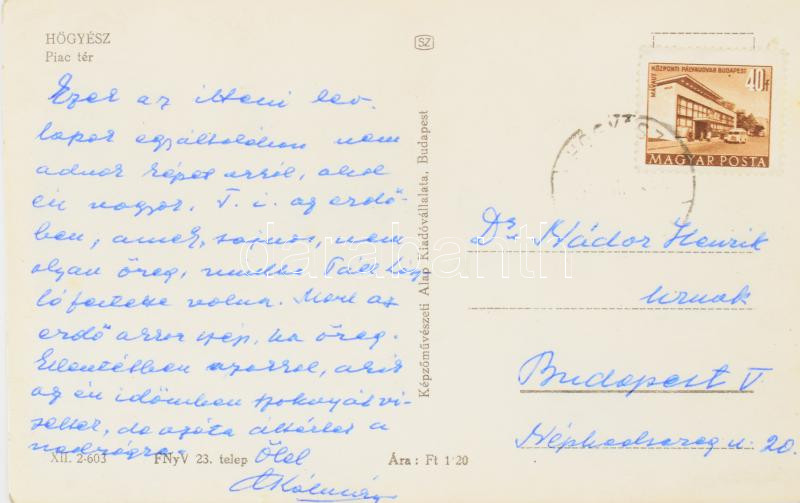 HŐGYÉSZ
Piac tér
Ezek az itteni lev.
lapok egyáltalában nem
adnak képet arról, ahol
én vagyok. T. i. az erdő-
ben, amely, sajnos, nem
olyan öreg, mintha
volna. Mert az
erdő akkor szép, ha öreg.
Ellentétben azokkal, akik
az én időmben szoknyát vi-
seltek, de azóta áttértek a
nadrágra. Ölel
Kálmán
XII. 2-603 FNyV 23. telep Ára : Ft 1'20
SZ
Képzőművészeti Alap Kiadóvállalata, Budapest
MÁVAUT KÖZPONTI PÁLYAUDVAR BUDAPEST
40f
MAGYAR POSTA
HŐGYÉSZ
Dr. Nádor Henrik
úrnak
Budapest V
Néphadsereg u. 20.
darabanth